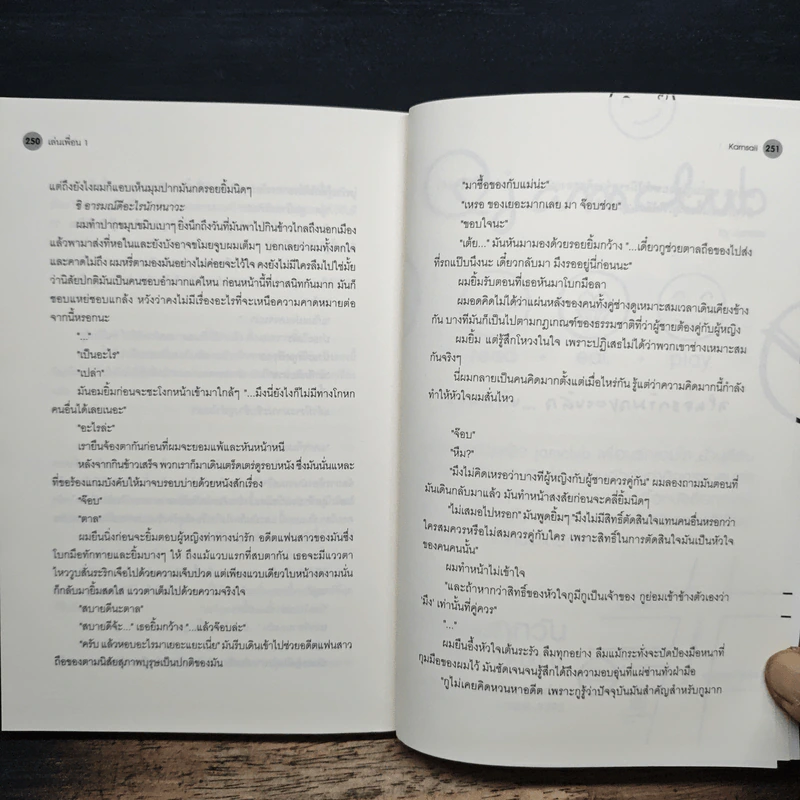 250 เล่นเพื่อน 1
แต่ถึงยังไงผมก็แอบเห็นมุมปากมันกดรอยยิ้มนิดๆ
ชิ อารมณ์ดีอะไรนักหนาวะ
ผมทำปากขมุบขมิบเบาๆ ยิ่งนึกถึงวันที่มันพาไปกินข้าวไกลถึงนอกเมือง
แล้วพามาส่งที่หอในและยังบังอาจขโมยจูบผมเต็มๆ บอกเลยว่าผมทั้งตกใจ
และคาดไม่ถึง ผมหรี่ตามองมันอย่างไม่ค่อยจะไว้ใจ คงยังไม่มีใครลืมไปใช่มั้ย
ว่านิสัยปกติมันเป็นคนชอบอำมากแค่ไหน ก่อนหน้านี้ที่เราสนิทกันมาก มันก็
ชอบแหย่ชอบแกล้ง หวังว่าคงไม่มีเรื่องอะไรที่จะเหนือความคาดหมายต่อ
จากนี้หรอกนะ
"..."
"เป็นอะไร"
"เปล่า"
มันอมยิ้มก่อนจะชะโงกหน้าเข้ามาใกล้ๆ "...มึงนี่ยังไงก็ไม่มีทางโกหก
คนอื่นได้เลยเนอะ"
"อะไรล่ะ"
เรายืนจ้องตากันก่อนที่ผมจะยอมแพ้และหันหน้าหนี
หลังจากกินข้าวเสร็จ พวกเราก็มาเดินเตร็ดเตร่ดูรอบหนัง ซึ่งมันนั่นแหละ
ที่ขอร้องแกมบังคับให้มาจบรอบบ่ายด้วยหนังสักเรื่อง
"จ๊อบ"
"ตาล"
ผมยืนนิ่งก่อนจะยิ้มตอบผู้หญิงท่าทางน่ารัก อดีตแฟนสาวของมันซึ่ง
โบกมือทักทายและยิ้มบางๆ ให้ ถึงแม้แวบแรกที่สบตากัน เธอจะมีแววตา
ไหววูบสั่นระริกเจือไปด้วยความเจ็บปวด แต่เพียงแวบเดียวใบหน้างดงามนั่น
ก็กลับมายิ้มสดใส แววตาเต็มไปด้วยความจริงใจ
"สบายดีนะตาล"
"สบายดีจ้ะ..." เธอยิ้มกว้าง "...แล้วจ๊อบล่ะ"
"ครับ แล้วหอบอะไรมาเยอะแยะเนี่ย" มันรีบเดินเข้าไปช่วยอดีตแฟนสาว
ถือของตามนิสัยสุภาพบุรุษเป็นปกติของมัน
Karnsaii 251
"มาซื้อของกับแม่น่ะ"
"เหรอ ของเยอะมากเลย มา จ๊อบช่วย"
"ขอบใจนะ"
"เต้ย..." มันหันมามองด้วยรอยยิ้มกว้าง "...เดี๋ยวกูช่วยตาลถือของไปส่ง
ที่รถแป๊บนึงนะ เดี๋ยวกลับมา มึงรออยู่นี่ก่อนนะ"
ผมยิ้มรับตอนที่เธอหันมาโบกมือลา
ผมอดคิดไม่ได้ว่าแผ่นหลังของคนทั้งคู่ช่างดูเหมาะสมเวลาเดินเคียงข้าง
กัน บางทีมันก็เป็นไปตามกฎเกณฑ์ของธรรมชาติที่ว่าผู้ชายต้องคู่กับผู้หญิง
ผมยิ้ม แต่รู้สึกโหวงในใจ เพราะปฏิเสธไม่ได้ว่าพวกเขาช่างเหมาะสม
กันจริงๆ
นี่ผมกลายเป็นคนคิดมากตั้งแต่เมื่อไหร่กัน รู้แต่ว่าความคิดมากนี้กำลัง
ทำให้หัวใจผมสั่นไหว
"จ๊อบ"
"หืม?"
"มึงไม่คิดเหรอว่าบางทีผู้หญิงกับผู้ชายควรคู่กัน" ผมลองถามมันตอนที่
มันเดินกลับมาแล้ว มันทำหน้าสงสัยก่อนจะคลี่ยิ้มนิดๆ
"ไม่เสมอไปหรอก" มันพูดยิ้มๆ "มึงไม่มีสิทธิ์ตัดสินใจแทนคนอื่นหรอกว่า
ใครสมควรหรือไม่สมควรคู่กับใคร เพราะสิทธิ์ในการตัดสินใจมันเป็นหัวใจ
ของคนคนนั้น"
ผมทำหน้าไม่เข้าใจ
"และถ้าหากว่าสิทธิ์ของหัวใจกูมีกูเป็นเจ้าของ กูย่อมเข้าข้างตัวเองว่า
'มึง' เท่านั้นที่คู่ควร"
"..."
ผมยืนอึ้งหัวใจเต้นระรัว ลืมทุกอย่าง ลืมแม้กระทั่งจะปัดป้องมือหนาที่
กุมมือของผมไว้ มันชัดเจนจนรู้สึกได้ถึงความอบอุ่นที่แผ่ซ่านทั่วฝ่ามือ
"กูไม่เคยคิดหวนหาอดีต เพราะกูรู้ว่าปัจจุบันมันสำคัญสำหรับกูมาก